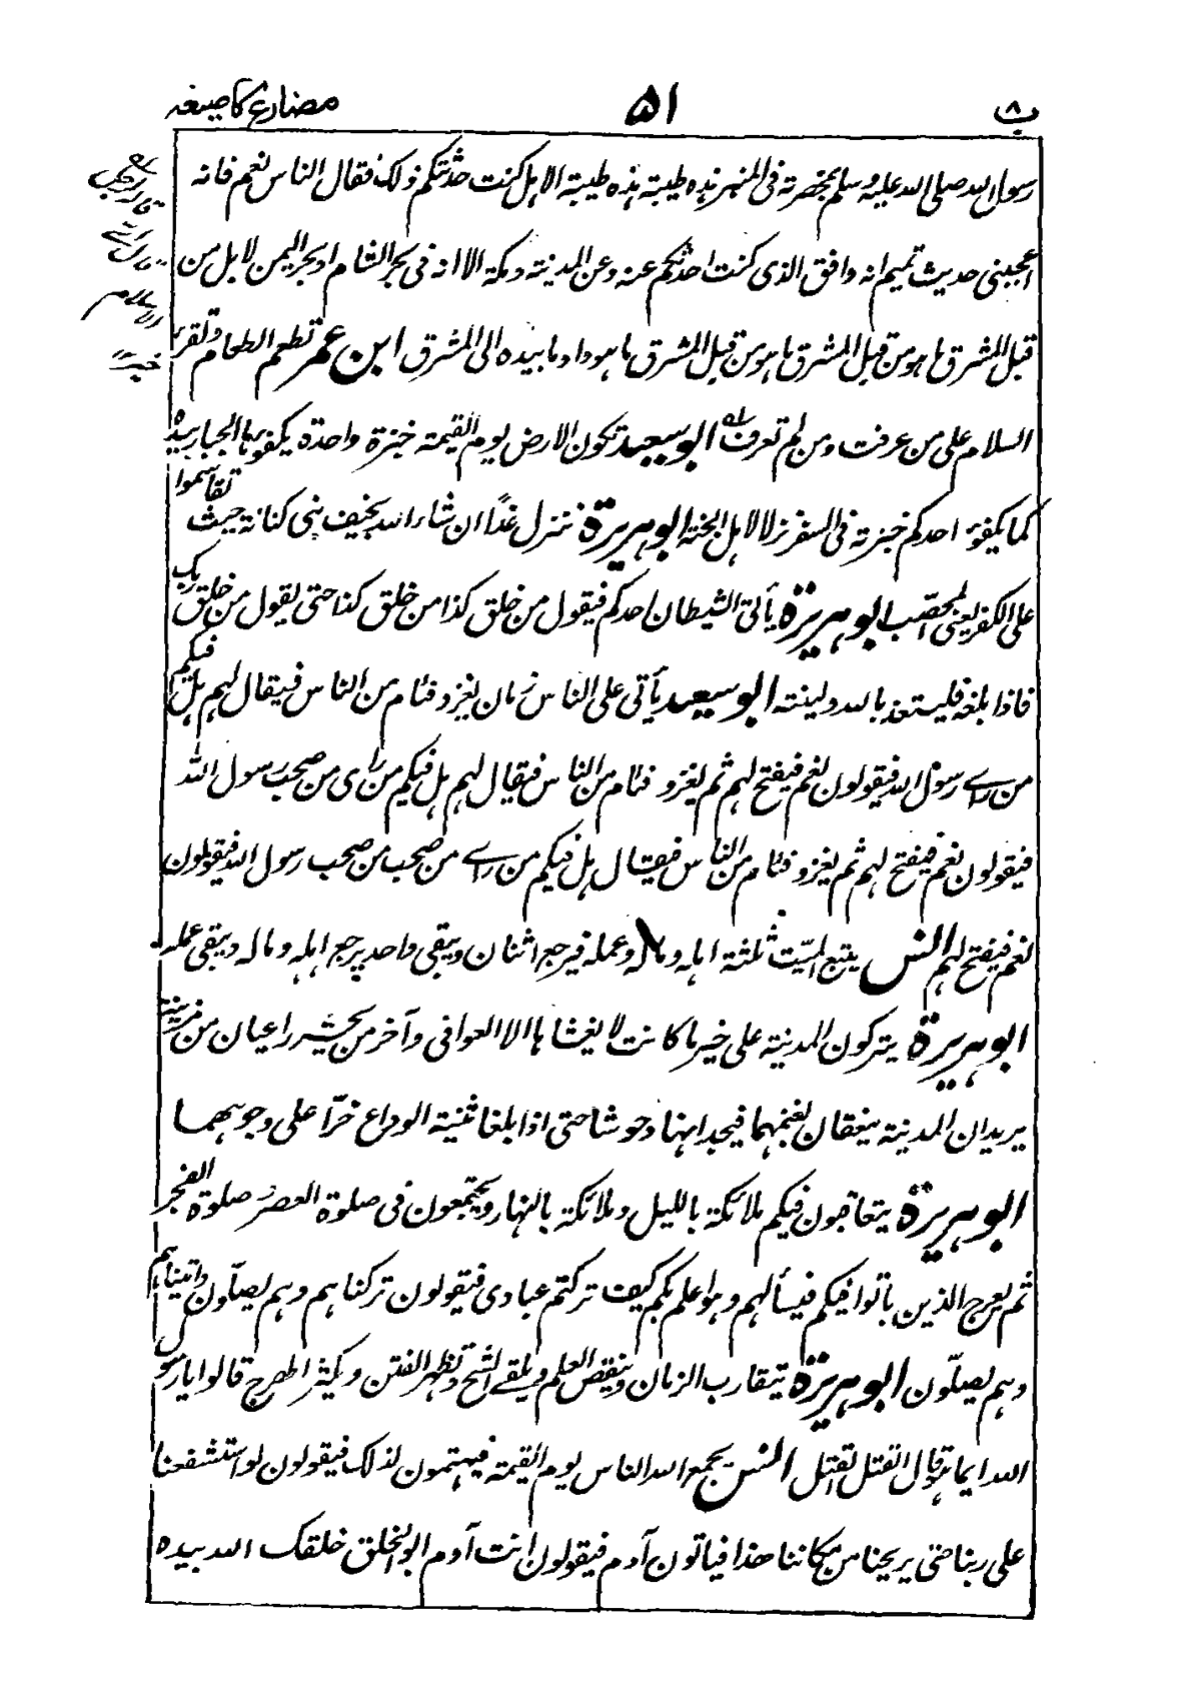 ب ۸
۵۱
مضارع کا صیغہ
رسول الله صلى الله عليه وسلم بمخصرته فى المنبر هذه طيبة هذه طيبة الا هل كنت حدثتكم ذلك فقال الناس نعم فانه
اعجبنى حديث تميم انه وافق الذى كنت احدثكم عنه وعن المدينة ومكة الا انه فى بحر الشام او بحر اليمن لا بل من
قبل المشرق ما هو من قبل المشرق ما هو من قبل المشرق ما هو واومأ بيده الى المشرق ابن عمر تطعم الطعام وتقرئ
السلام على من عرفت ومن لم تعرف ابو سعيد تكون الارض يوم القيمة خبزة واحدة يكفوها الجبار بيده
كما يكفؤ احدكم خبزته فى السفر نزلا لاهل الجنة ابو هريرة ننزل غدًا ان شاء الله بخيف بنى كنانة حيث تقاسموا
على الكفر يعنى المحصّب ابو هريرة يأتى الشيطان احدكم فيقول من خلق كذا من خلق كذا حتى يقول من خلق ربك
فاذا بلغه فليستعذ بالله ولينته ابو سعيد يأتى على الناس زمان يغزو فئام من الناس فيقال لهم هل فيكم
من راے رسول الله فيقولون نعم فيفتح لهم ثم يغزو فئام من الناس فيقال لهم هل فيكم من راى من صحب رسول الله
فيقولون نعم فيفتح لهم ثم يغزو فئام من الناس فيقال هل فيكم من راے من صحب من صحب رسول الله فيقولون
نعم فيفتح لهم انس يتبع الميّت ثلثة اهله وماله وعمله فيرجع اثنان ويبقى واحد يرجع اهله وماله ويبقى عمله
ابو هريرة يتركون المدينة على خير ما كانت لا يغشاها الا العوافى وآخر من يحشر راعيان من مزينة
يريدان المدينة ينعقان بغنمهما فيجدانها وحوشا حتى اذا بلغا ثنية الوداع خرّا على وجوههما
ابو هريرة يتعاقبون فيكم ملائكة بالليل وملائكة بالنهار ويجتمعون فى صلوة العصر وصلوة الفجر
ثم يعرج الذين باتوا فيكم فيسألهم وهو اعلم بكم كيف تركتم عبادى فيقولون تركناهم وهم يصلّون واتيناهم
وهم يصلّون ابو هريرة يتقارب الزمان وينقص العلم ويلقے الشح وتظهر الفتن ويكثر الهرج قالوا يا رسول
الله ايما هو قال القتل القتل انس يجمع الله الناس يوم القيمة فيهتمون لذلك فيقولون لو استشفعنا
على ربنا حتى يريحنا من مكاننا هذا فياتون آدم فيقولون انت آدم ابو الخلق خلقك الله بيده